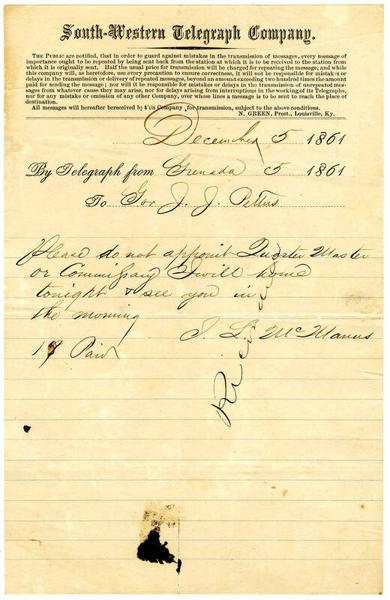 South-Western Telegraph Company.
THE PUBLIC are notified, that in order to guard against mistakes in the transmission of messages, every message of
importance ought to be repeated by being sent back from the station at which it is to be received to the station from
which it is originally sent. Half the usual price for transmission will be charged for repeating the message, and while
this company will, as heretofore, use every precaution to ensure correctness, it will not be responsible for mistakes or
delays in the transmission or delivery of repeated messages, beyond an amount exceeding two hundred times the amount
paid for sending the message; nor will it be responsible for mistakes or delays in the transmission of unrepeated messages
from whatever cause they may arise, nor for delays arising from interruptions in the working of its Telegraphs,
nor for any mistake or omission of any other Company, over whose lines a message is to be sent to reach the place of
destination.
All messages will hereafter be received by this Company for transmission, subject to the above conditions.
N. GREEN, Prest., Louisville, Ky.
December 5 1861
By Telegraph from Grenada 5 1861
To Gov J. J. Pettus
Please do not appoint Quarter Master
or Commissary I will come
tonight & see you in
the morning
J. L. McManus
19 Paid